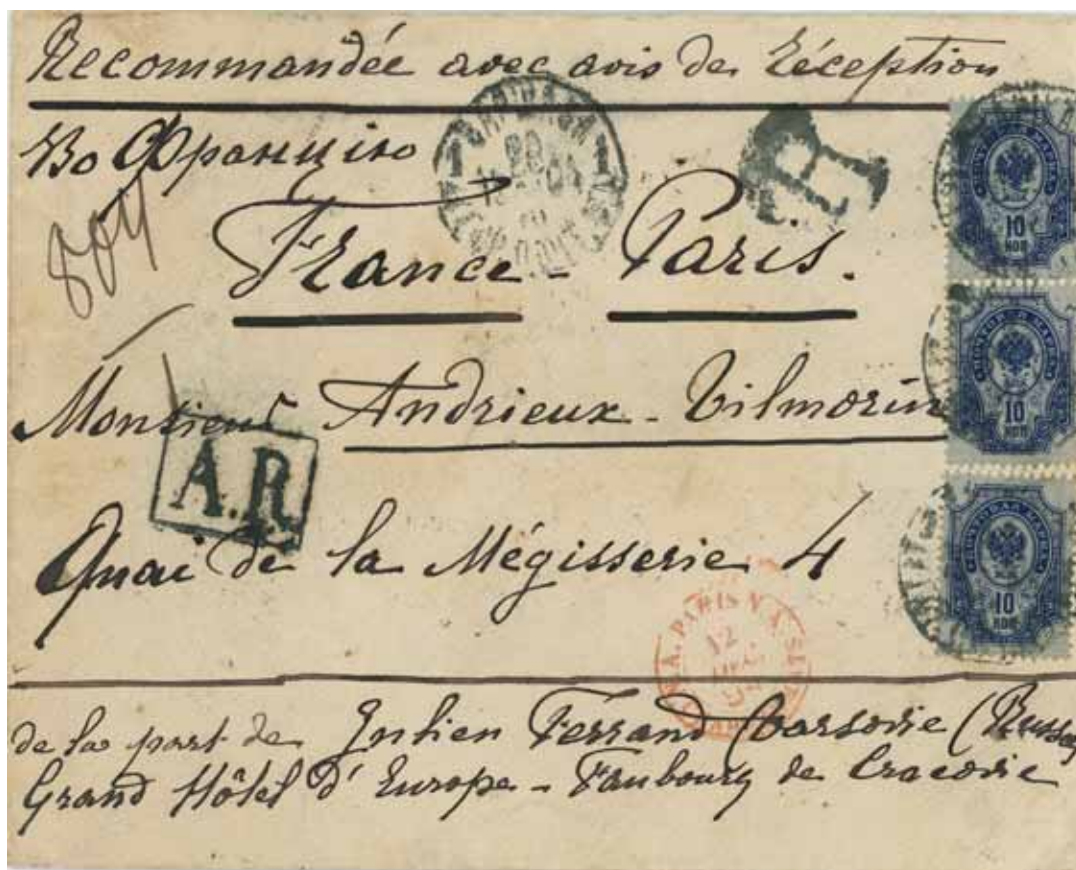 Recommandée avec avis de Réception
Во Францію
R
804
France - Paris.
10
КОП
Monsieur Andrieux - Vilmorin
ПОЧТОВАЯ МАРКА
10
КОП
A.R.
Quai de la Mégisserie 4
ПОЧТОВАЯ МАРКА
10
КОП
PARIS
12
de la part de Julien Ferrand Varsovie (Russe)
Grand Hôtel d'Europe - Faubourg de Cracovie